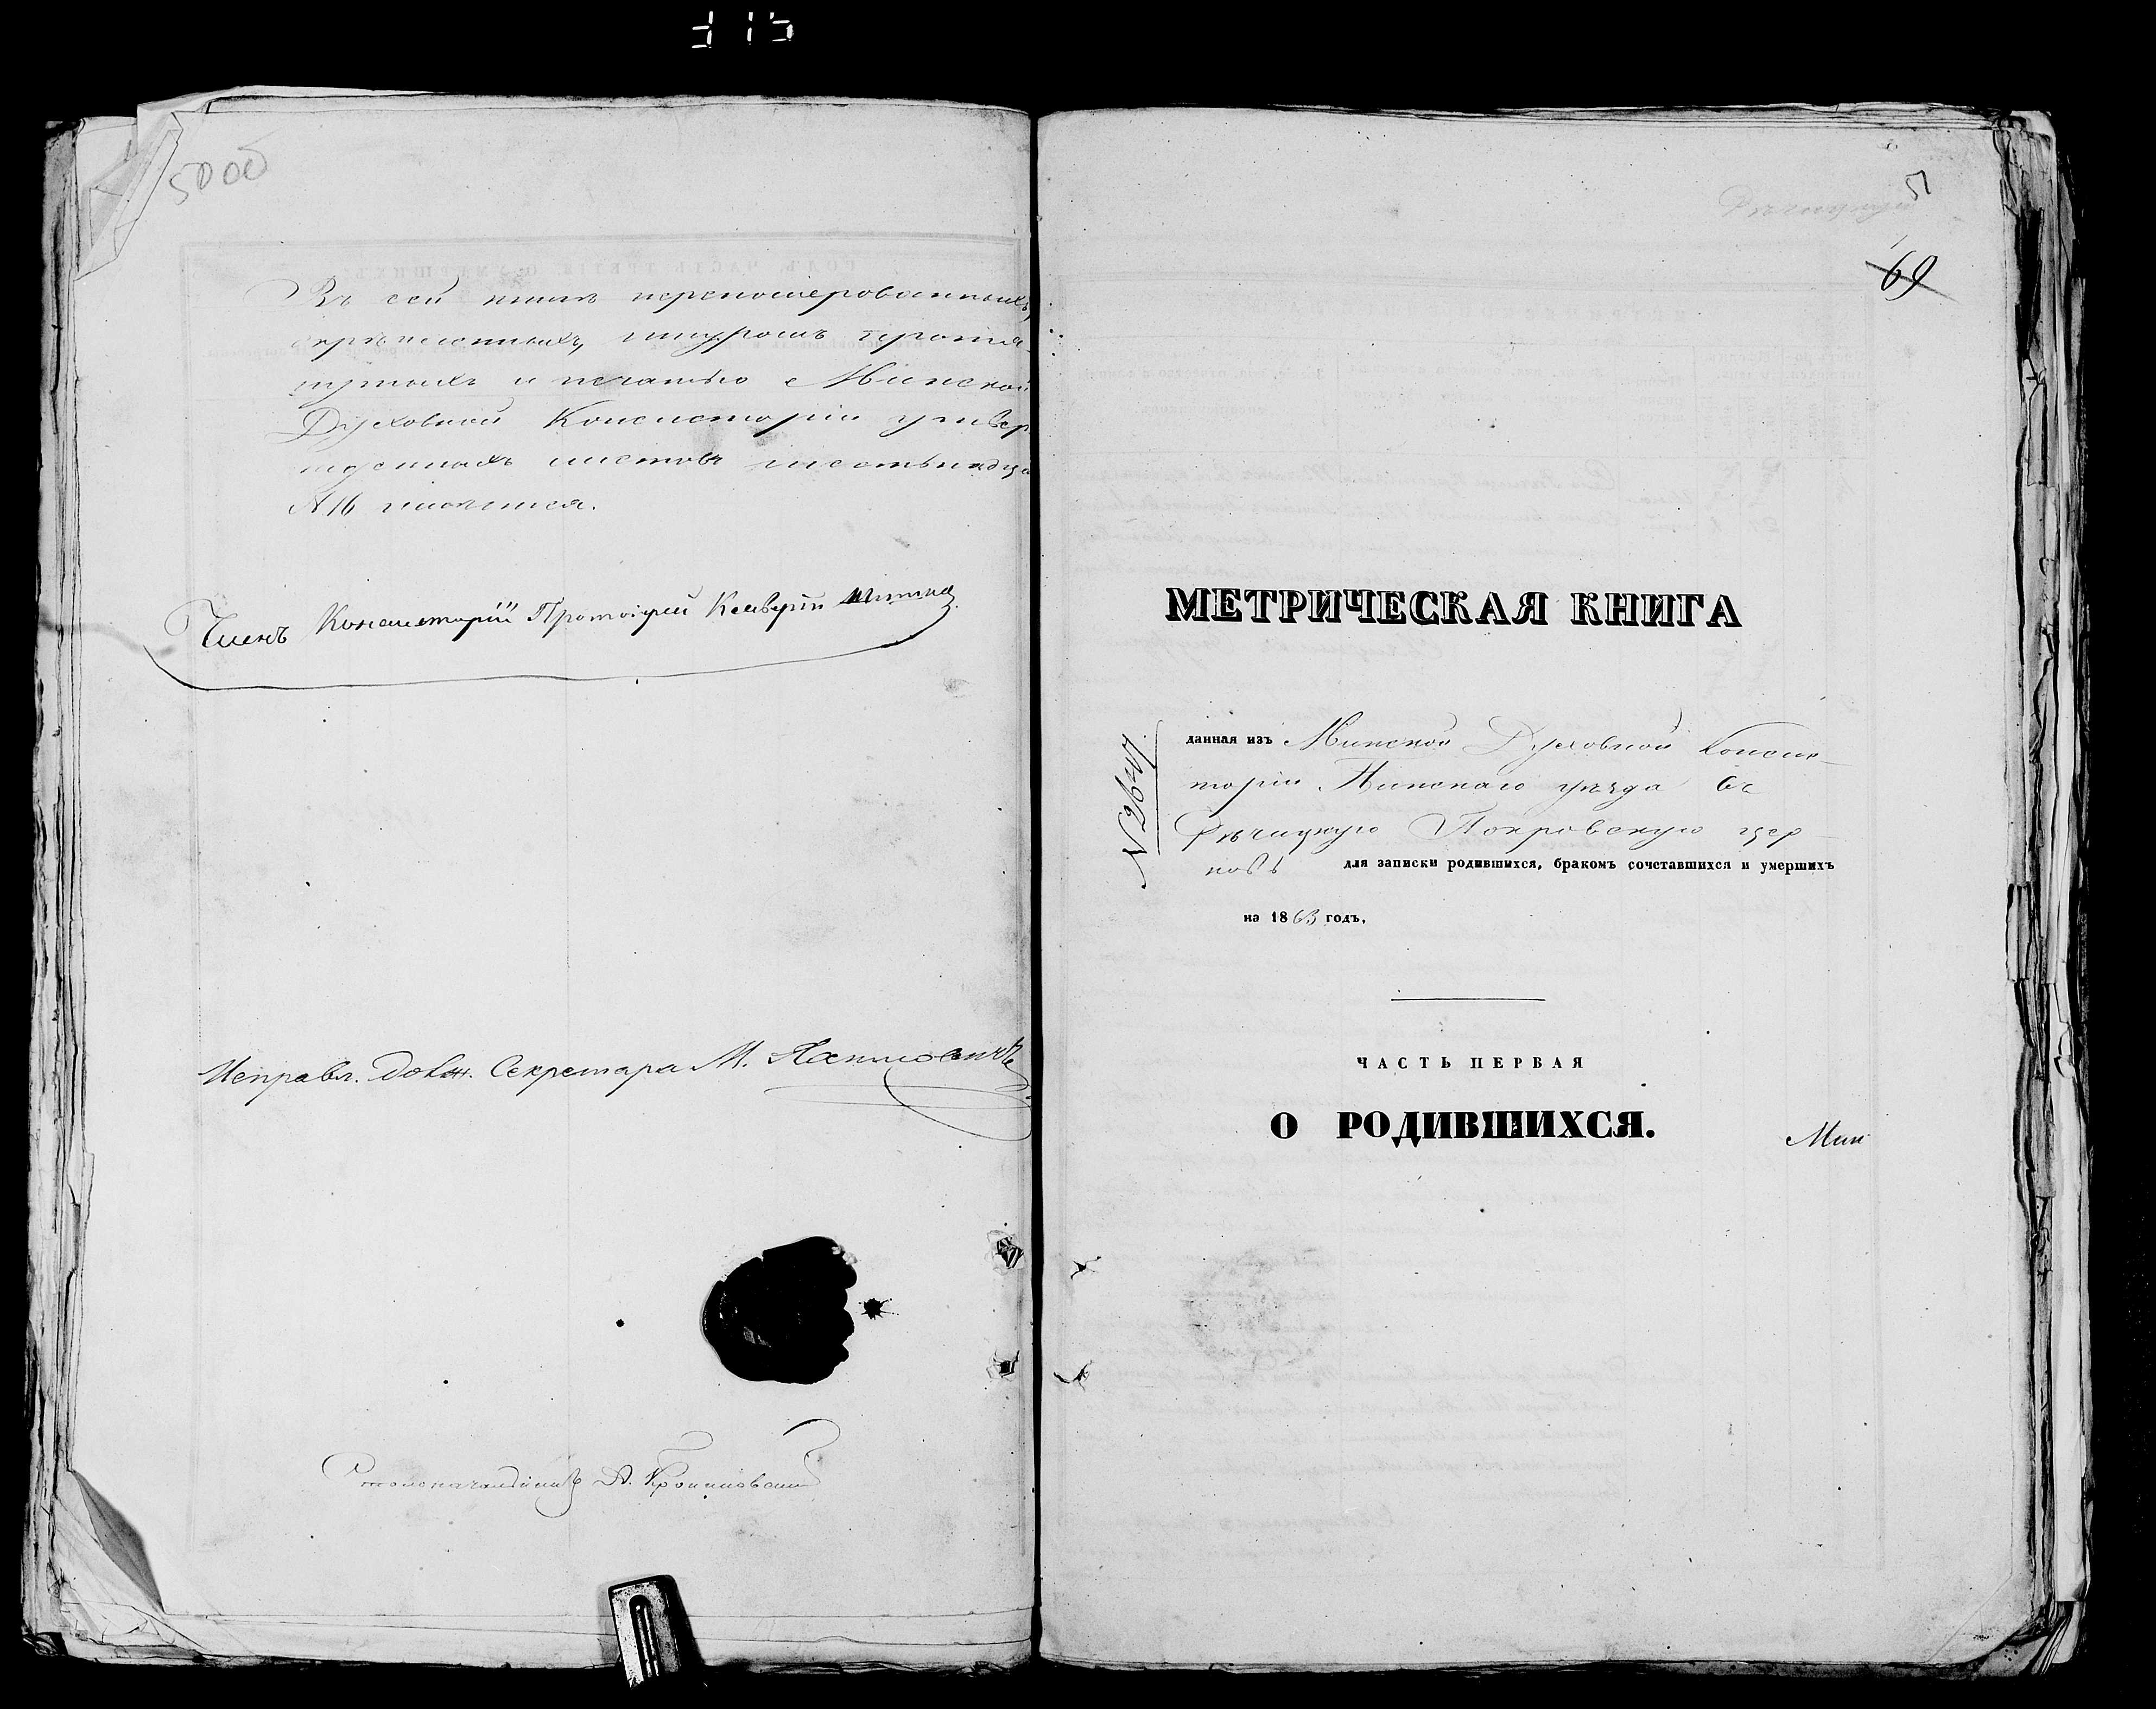 50 об
Въ сей книгѣ перенумерованныхъ,
скрѣпленныхъ, шнуромъ протя-
нутыхъ и печатью Минской
Духовной Консисторіи утвер
жденныхъ листовъ шестьнадца
№ 16 имѣется.
Членъ Консисторіи Протоіерей
Исправл. долж. Секретара М.
Столоначальникъ А.
51
69
МЕТРИЧЕСКАЯ КНИГА
№ 2647
данная изъ Минской Духовной Консис-
торіи Пинскаго уѣзда въ
Рѣчицкую Покровскую цер-
ковь для записки родившихся, бракомъ сочетавшихся и умершихъ
на 1863 годъ.
ЧАСТЬ ПЕРВАЯ
О РОДИВШИХСЯ.
Мин